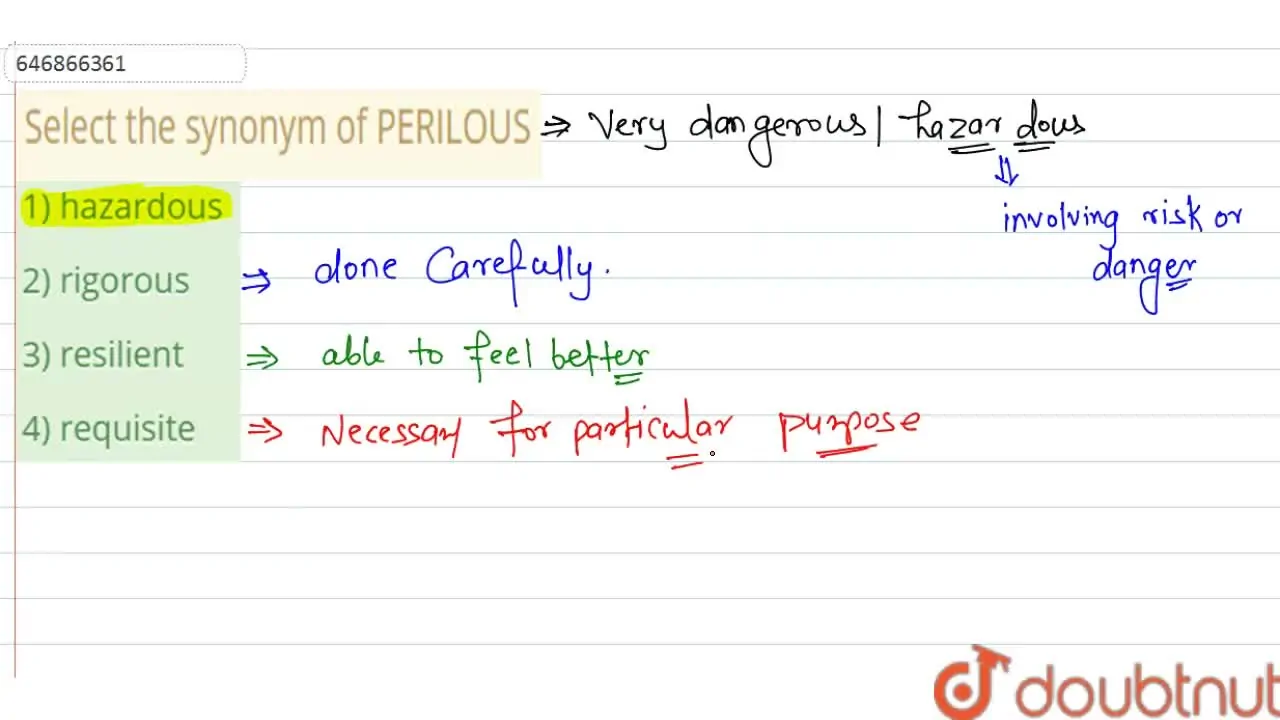 646866361
Select the synonym of PERILOUS ⇒ Very dangerous | hazardous
⇓
1) hazardous
involving risk or
danger
2) rigorous ⇒ done Carefully.
3) resilient ⇒ able to feel better
4) requisite ⇒ Necessary for particular purpose
doubtnut